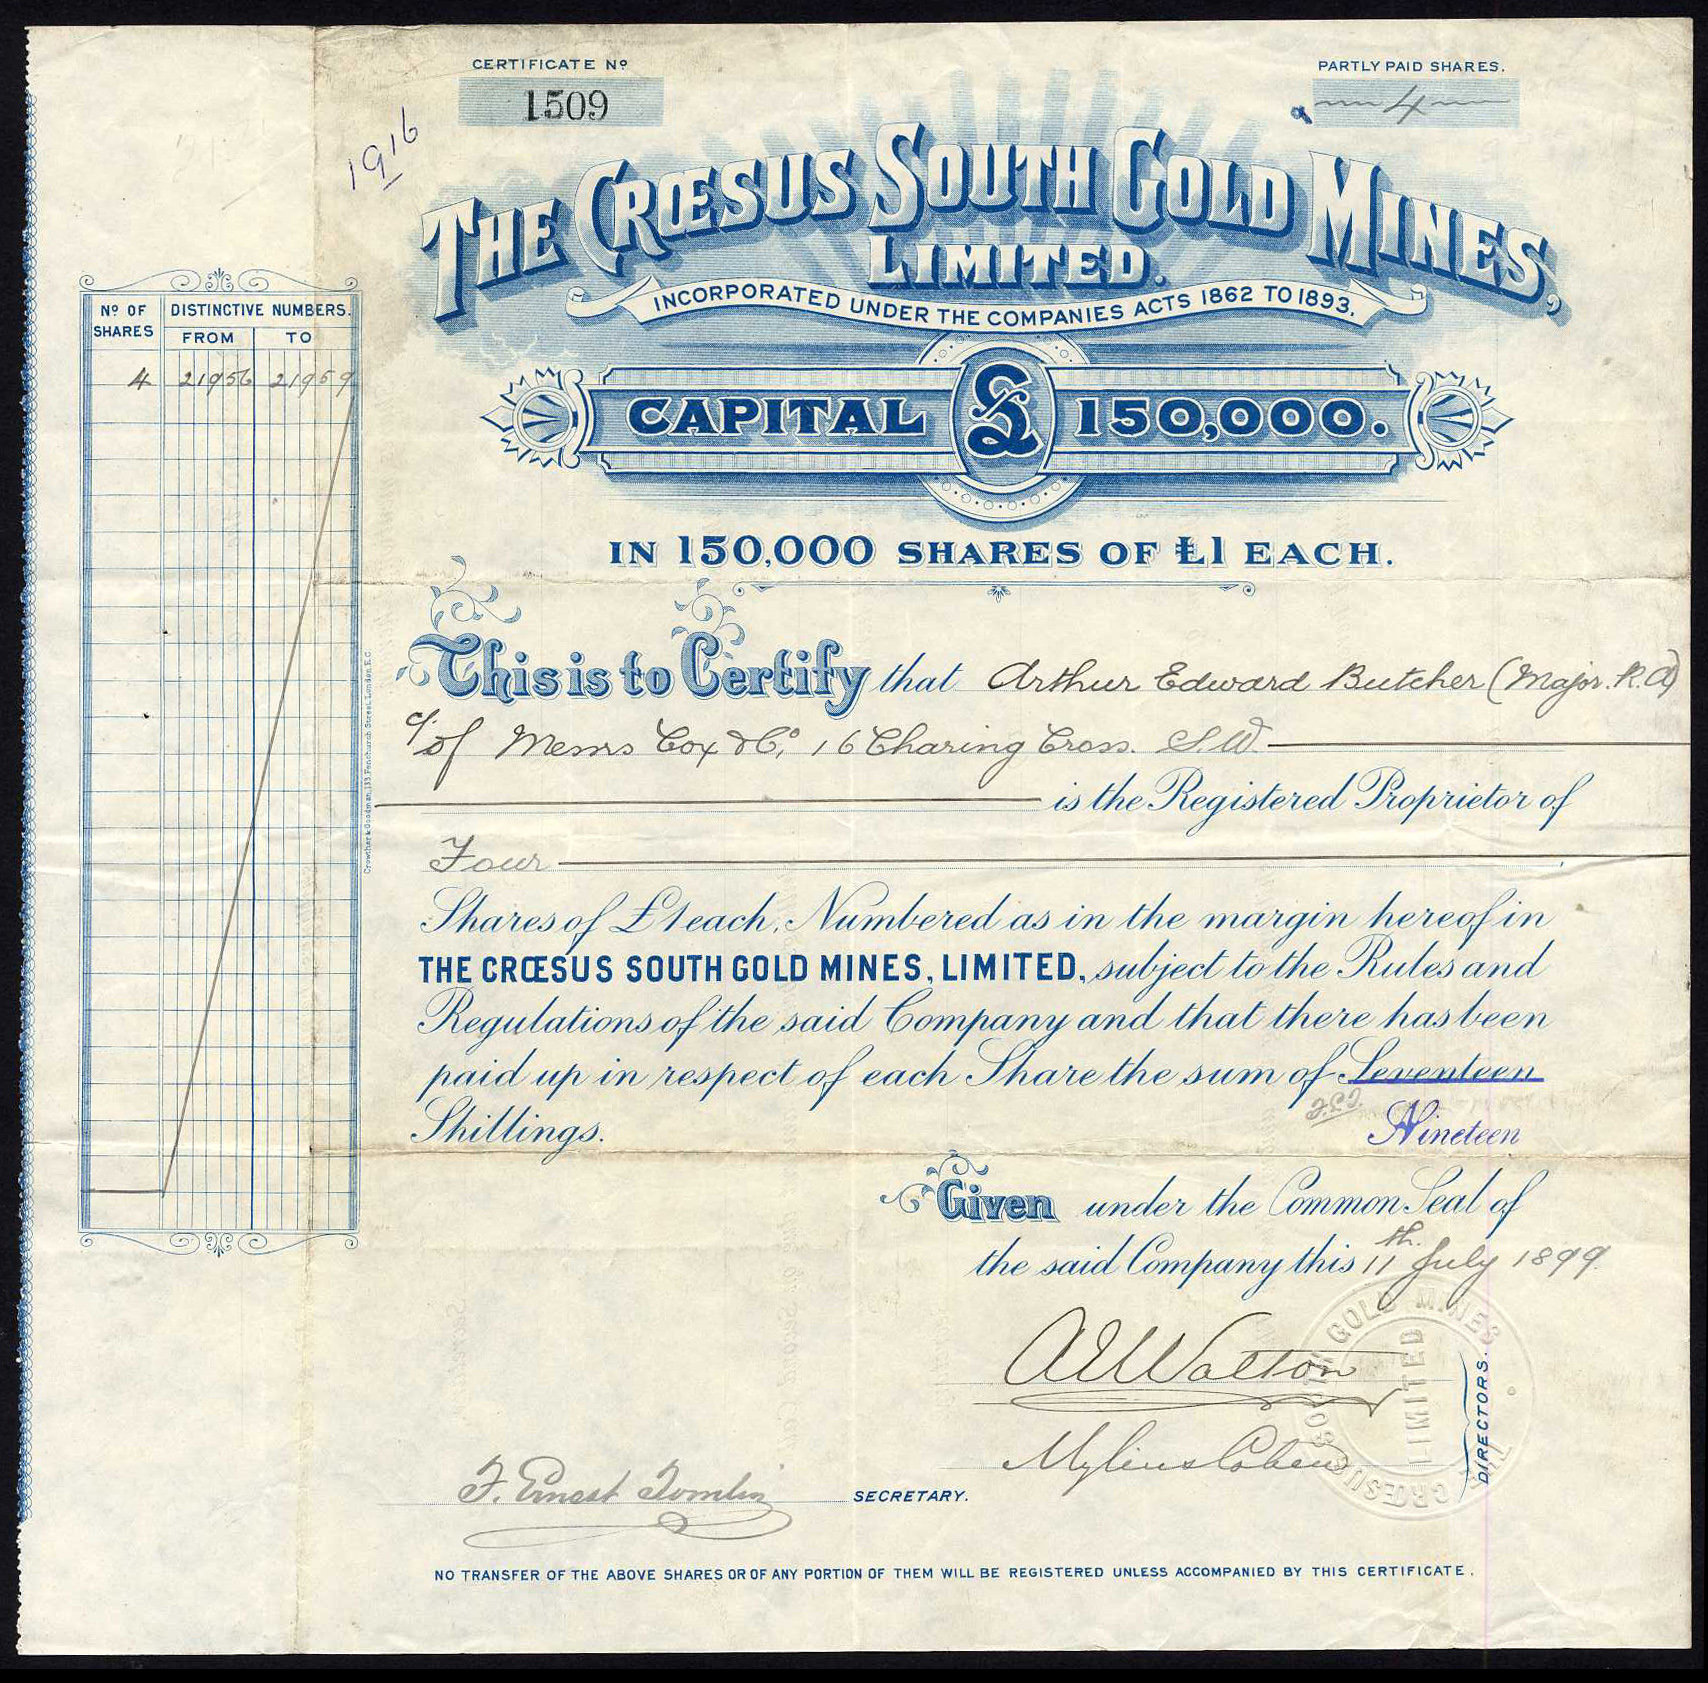 CERTIFICATE Nº
1509
PARTLY PAID SHARES.
4
1916
THE CRŒSUS SOUTH GOLD MINES,
LIMITED.
INCORPORATED UNDER THE COMPANIES ACTS 1862 TO 1893.
CAPITAL £ 150,000.
IN 150,000 SHARES OF £1 EACH.
Nº OF SHARES
DISTINCTIVE NUMBERS.
FROM TO
4 21956 21959
This is to Certify that Arthur Edward Butcher (Major. R.A)
c/o of Messrs Cox & Co, 16 Charing Cross. S.W.
is the Registered Proprietor of
Four
Shares of £1 each, Numbered as in the margin hereof in
THE CRŒSUS SOUTH GOLD MINES, LIMITED, subject to the Rules and
Regulations of the said Company and that there has been
paid up in respect of each Share the sum of Seventeen
Shillings.
Nineteen
Given under the Common Seal of
the said Company this 11th July 1899
A E Walton
Mylius Cohen
DIRECTORS.
F. Ernest Tomlin
SECRETARY.
CRŒSUS SOUTH GOLD MINES
LIMITED
NO TRANSFER OF THE ABOVE SHARES OR OF ANY PORTION OF THEM WILL BE REGISTERED UNLESS ACCOMPANIED BY THIS CERTIFICATE.
Crowther & Goodman, 133, Fenchurch Street, London, E.C.